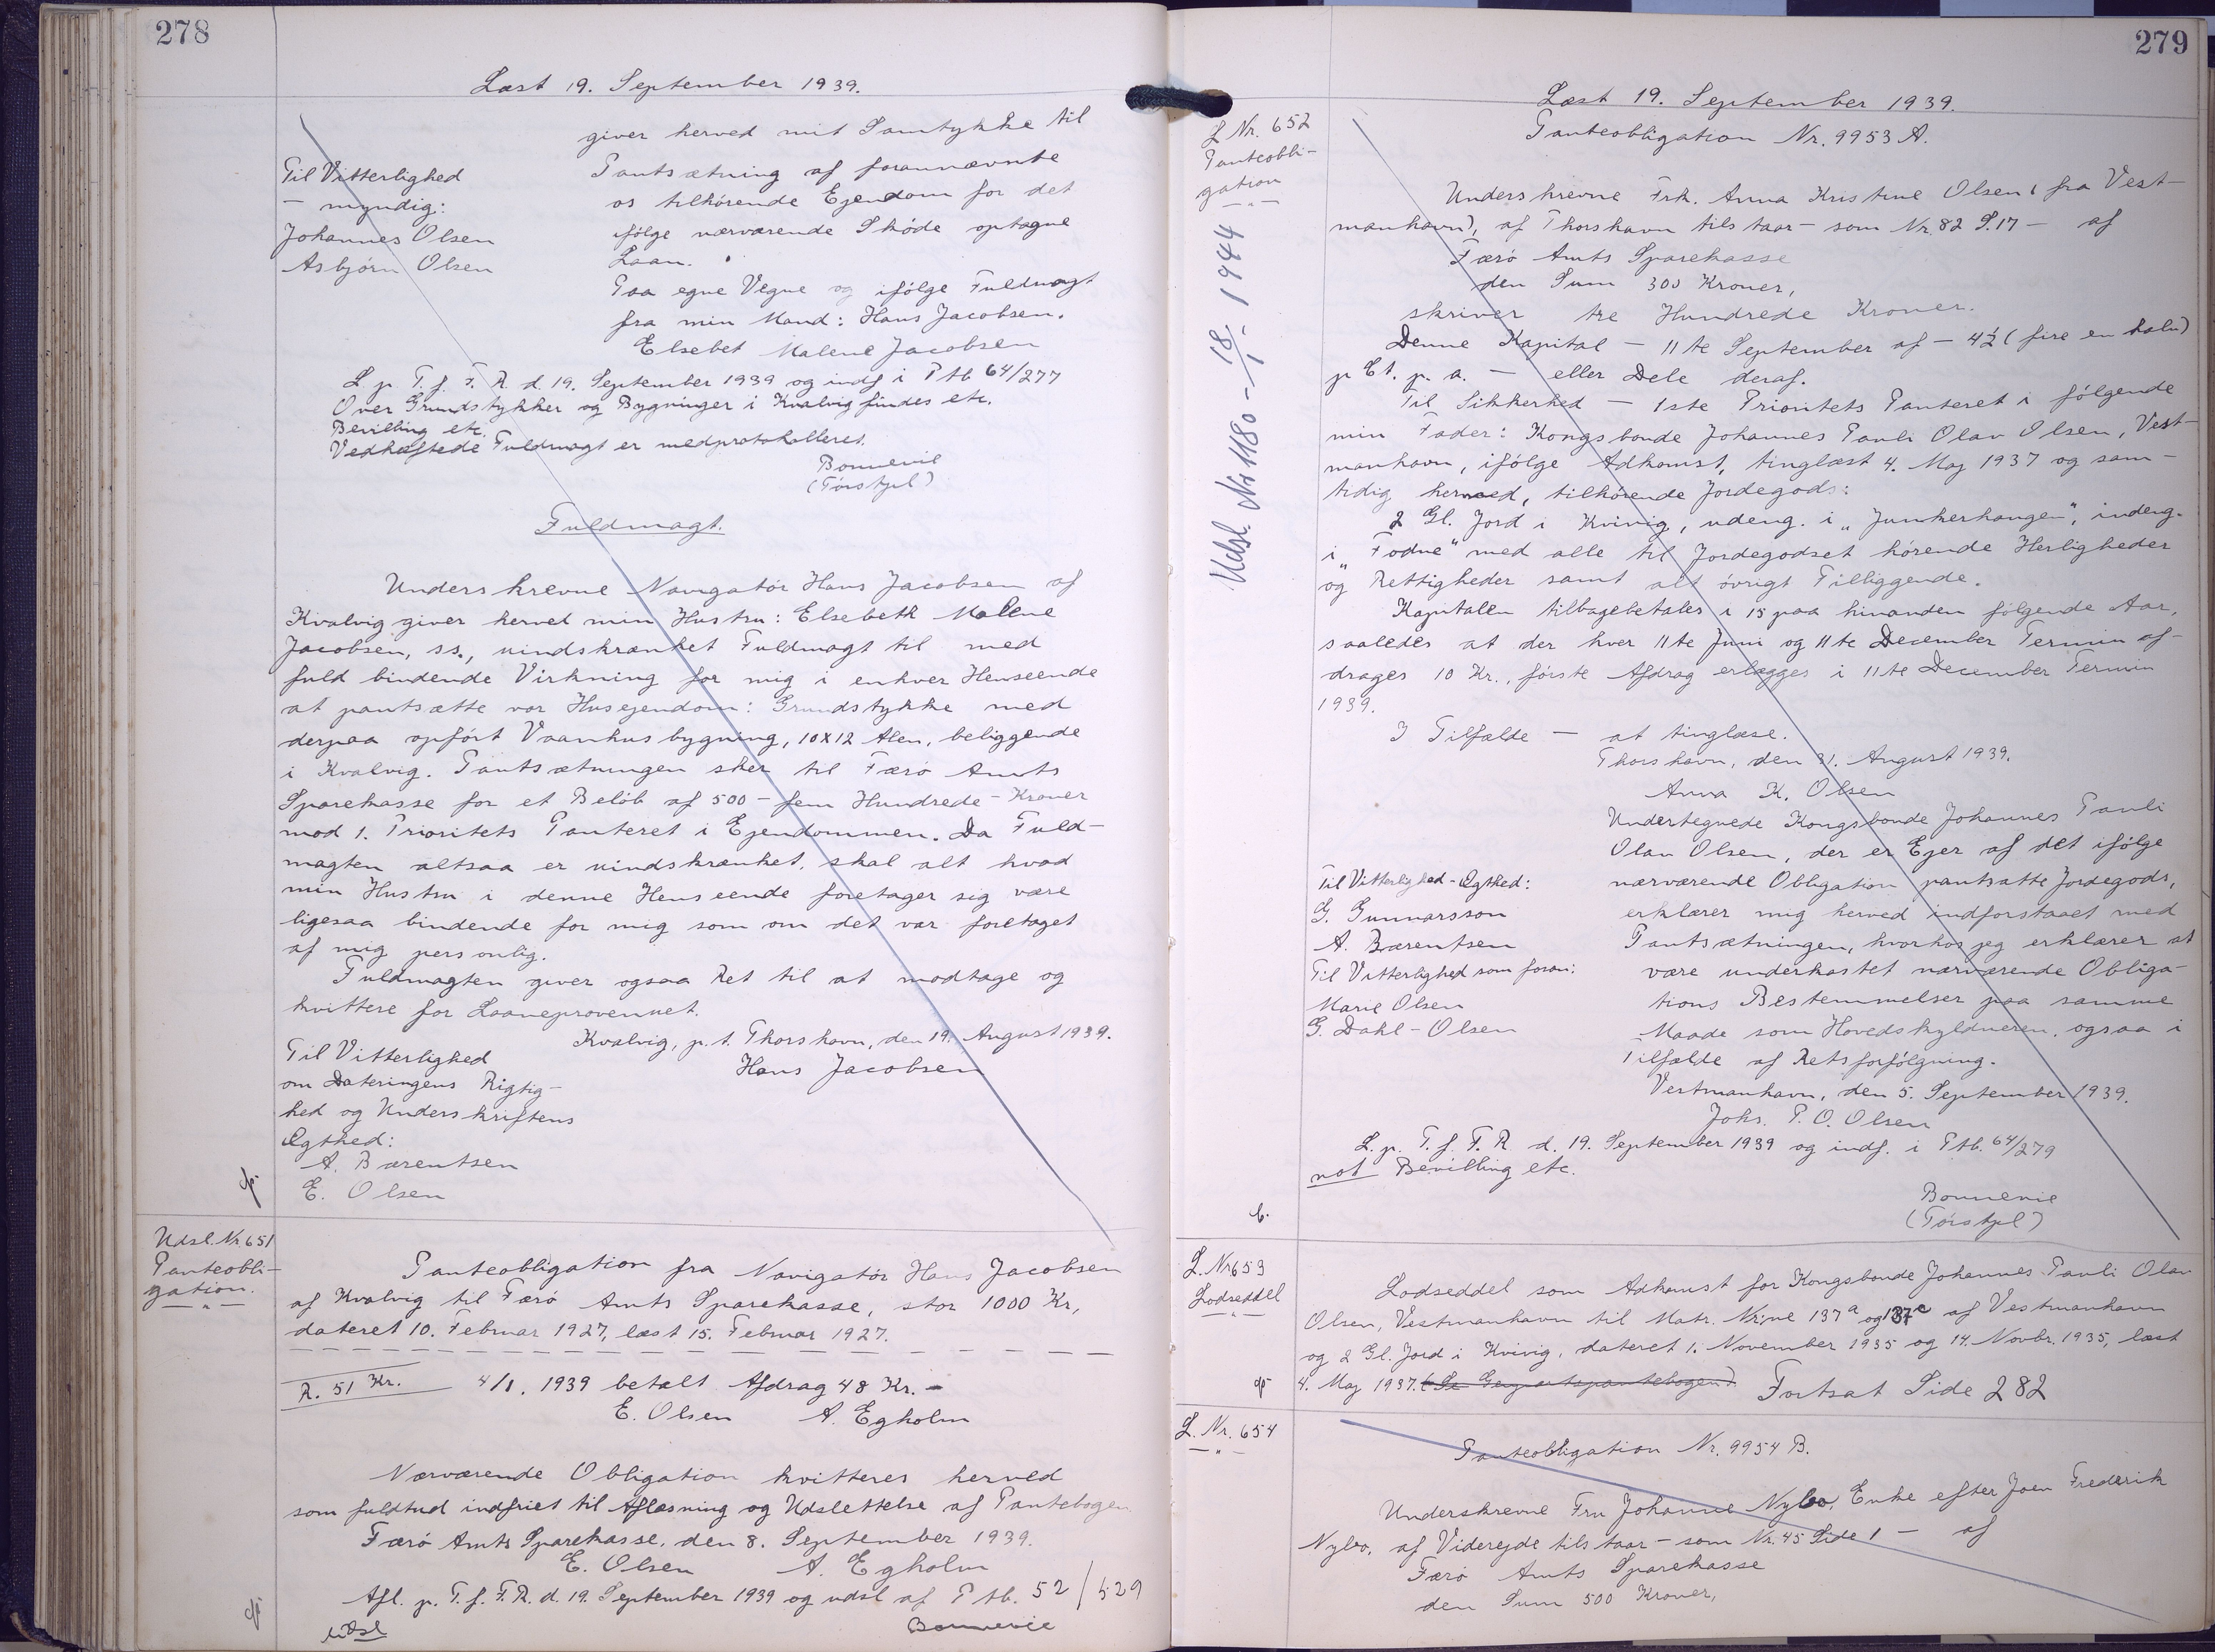 278
Læst 19. September 1939.
giver herved mit Samtykke til
Til Vitterlighed
— myndig:
Johannes Olsen
Asbjørn Olsen
Pantsætning af forannævnte
os tilhörende Ejendom for det
ifölge nærværende Sköde optagne
Laan.
Paa egne Vegne og ifölge Fuldmagt
fra min Mand: Hans Jacobsen.
Elsebet Malene Jacobsen
L. p. T. f. F. R. d. 19. September 1939 og indf i Ptb 64/277
Over Grundstykker og Bygninger i Kvalvig findes etc.
Bevilling etc.
Vedhæftede Fuldmagt er medprotokolleret.
Bonnevie
(Törstjel)
Fuldmagt.
Underskrevne Navigatör Hans Jacobsen af
Kvalvig giver herved min Hustru: Elsebeth Malene
Jacobsen, ss., uindskrænket Fuldmagt til med
fuld bindende Virkning for mig i enhver Henseende
at pantsætte vor Husejendom: Grundstykke med
derpaa opfört Vaanhusbygning, 10x12 Alen, beliggende
i Kvalvig. Pantsætningen sker til Færö Amts
Sparekasse for et Belöb af 500 - fem Hundrede - Kroner
mod 1. Prioritets Panteret i Ejendommen. Da Fuld-
magten altsaa er uindskrænket, skal alt hvad
min Hustru i denne Henseende foretager sig være
ligesaa bindende for mig som om det var foretaget
af mig personlig.
Fuldmagten giver ogsaa Ret til at modtage og
kvittere for Laaneprovennuet.
Kvalvig, p. t. Thorshavn, den 19. August 1939.
Hans Jacobsen
Til Vitterlighed
om Dateringens Rigtig-
hed og Underskriftens
Ægthed:
A. Bærentsen
E. Olsen
Udsl. Nr. 651
Panteobli-
gation.
— " —
Panteobligation fra Navigatör Hans Jacobsen
af Kvalvig til Færö Amts Sparekasse, stor 1000 Kr,
dateret 10. Februar 1927, læst 15. Februar 1927.
R. 51 Kr.
4/1. 1939 betalt Afdrag 48 Kr. -
E. Olsen A. Egholm
Nærværende Obligation kvitteres herved
som fuldtud indfriet til Aflæsning og Udslettelse af Pantebogen
Færö Amts Sparekasse, den 8. September 1939.
E. Olsen A. Egholm
Afl. p. T. f. F. R. d. 19. September 1939 og udsl af Ptb. 52/529
udsl
Bonnevie
279
Læst 19. September 1939.
L Nr. 652
Panteobli-
gation
— " —
Udsl. Nr 1180 - 18/1 - 1944
Panteobligation Nr. 9953 A.
Underskrevne Frk. Anna Kristine Olsen (fra Vest-
manhavn), af Thorshavn tilstaar - som Nr. 82 S. 17 - af
Færö Amts Sparekasse
den Sum 300 Kroner,
skriver tre Hundrede Kroner.
Denne Kapital - 11te September af - 4½ (fire en halv)
p Ct. p. a. - eller Dele deraf.
Til Sikkerhed - 1ste Prioritets Panteret i fölgende
min Fader: Kongsbonde Johannes Pauli Olav Olsen, Vest-
manhavn, ifölge Adkomst, tinglæst 4. Maj 1937 og sam-
tidig hermed, tilhörende Jordegods:
2 Gl. Jord i Kvivig, udeng. i „Junkerhangen", indeng.
i „Fodne" med alle til Jordegodset hörende Herligheder
og Rettigheder samt alt övrigt Tilliggende.
Kapitalen tilbagebetales i 15 paa hinanden fölgende Aar,
saaledes at der hver 11te Juni og 11te December Termin af-
drages 10 Kr., förste Afdrag erlægges i 11te December Termin
1939.
I Tilfælde - at tinglæse.
Thorshavn, den 31. August 1939.
Anna K. Olsen
Undertegnede Kongsbonde Johannes Pauli
Olav Olsen, der er Ejer af det ifölge
nærværende Obligation pantsatte Jordegods,
erklærer mig herved indforstaaet med
Pantsætningen, hvorhos jeg erklærer at
være underkastet nærværende Obliga-
tions Bestemmelser paa samme
Maade som Hovedskyldneren, ogsaa i
Tilfælde af Retsforfölgning.
Vestmanhavn, den 5. September 1939.
Johs. P. O. Olsen
Til Vitterlighed - Ægthed:
G. Gunnarsson
A. Bærentsen
Til Vitterlighed som foran:
Marie Olsen
G. Dahl-Olsen
L. p. T. f. F. R d. 19. September 1939 og indf. i Ptb. 64/279
not Bevilling etc.
Bonnevie
(Törstjel)
L. Nr 653
Lodseddel
— " —
Lodseddel som Adkomst for Kongsbonde Johannes Pauli Olav
Olsen, Vestmanhavn til Matr. Nr;ne 137a og 137c af Vestmanhavn
og 2 Gl. Jord i Kvivig, dateret 1. November 1935 og 14. Novbr. 1935, læst
4. Maj 1937. Fortsat Side 282
L. Nr. 654
— " —
Panteobligation Nr. 9954 B.
Underskrevne Fru Johanne Nybo, Enke efter Joen Frederik
Nybo, af Viderejde tilstaar - som Nr. 45 Side 1 - af
Færö Amts Sparekasse
den Sum 500 Kroner,